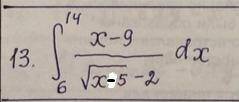 13. ∫₆¹⁴ (x-9)/(√(x-5) -2) dx